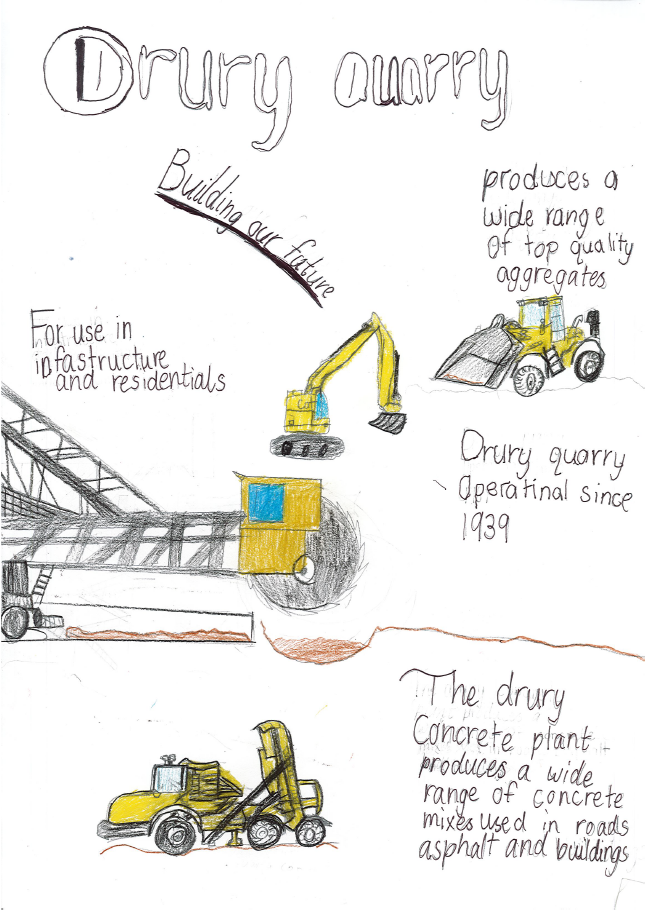 Drury quarry
Building our future
produces a
wide range
of top quality
aggregates
For use in
infastructure
and residentials
Cat
Drury quarry
Operatinal since
1939
The drury
Concrete plant
produces a wide
range of concrete
mixes used in roads
asphalt and buildings